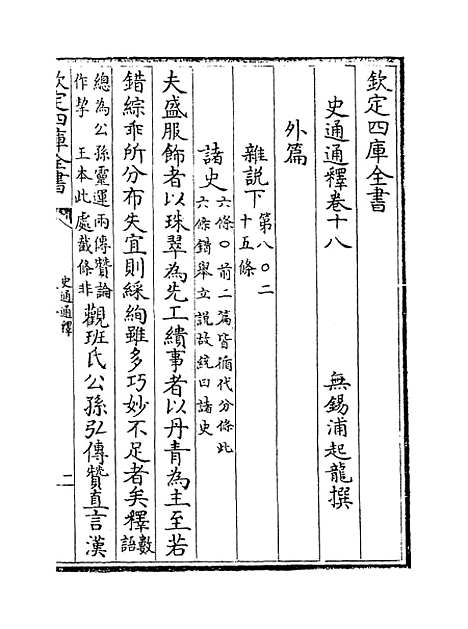 欽定四庫全書
史通通釋卷十八
無錫浦起龍撰
外篇
雜說下第八〇二十五條
諸史六條〇前二篇皆循代分條此六條錯舉立說故統曰諸史
夫盛服飾者以珠翠為先工繢事者以丹青為主至若
錯綜乖所分布失宜則綵絢雖多巧妙不足者矣釋數語
總為公孫靈運兩傳贊論作挈 王本此處截條非觀班氏公孫弘傳贊直言漢
欽定四庫全書
史通通釋